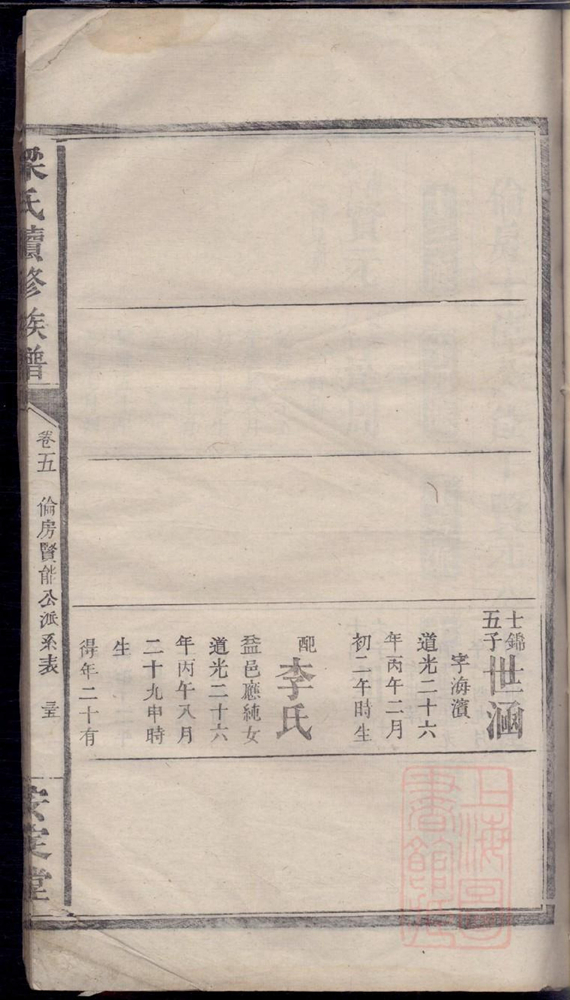 士錦
五子
世涵
字海濱
道光二十六
年丙午二月
初二午時生
配
李氏
益邑應純女
道光二十六
年丙午八月
二十九申時
生
得年二十有
梁氏續修族譜
卷五
倫房賢能公派系表
安定堂
上海圖
書館藏